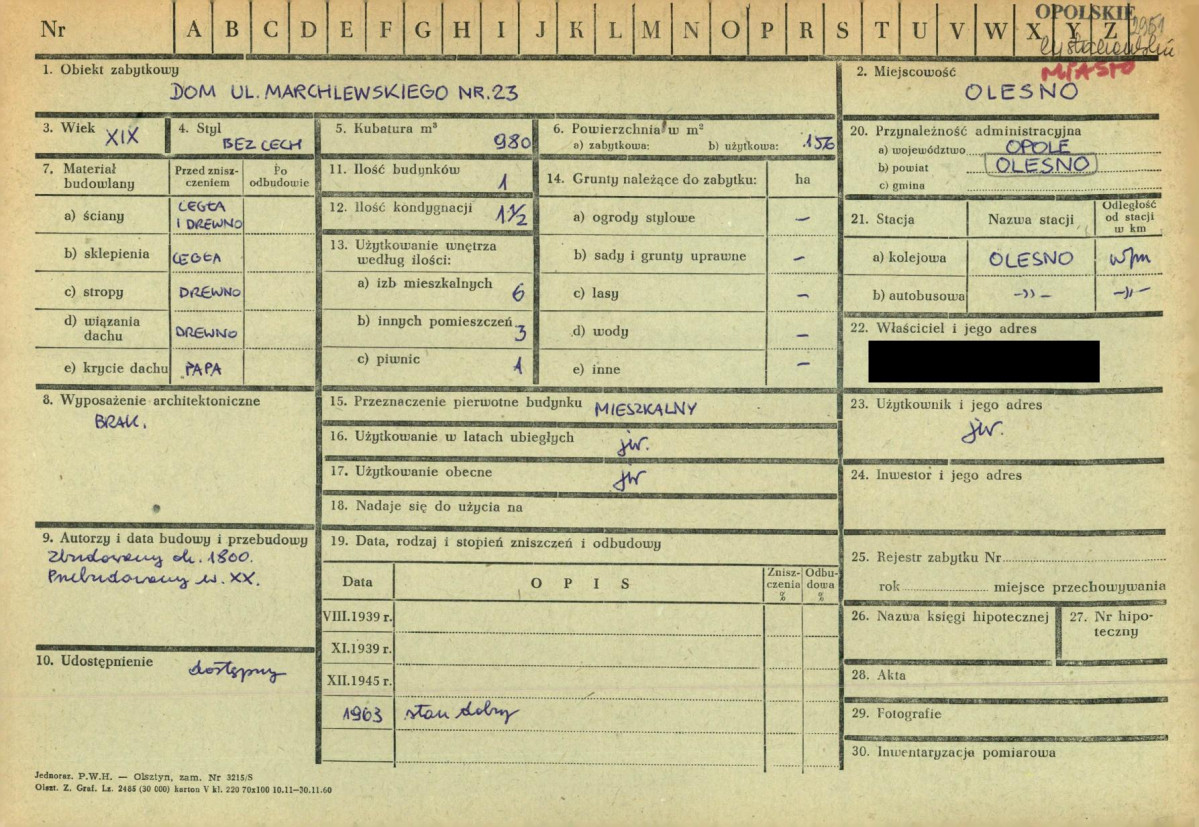 Nr A B C D E F G H I J K L M N O P R S T U V W X Y Z
OPOLSKIE
MIASTO
1. Obiekt zabytkowy
DOM UL. MARCHLEWSKIEGO NR. 23
2. Miejscowość
OLESNO
3. Wiek XIX
4. Styl BEZ CECH
5. Kubatura m³ 980
6. Powierzchnia w m²
a) zabytkowa: b) użytkowa: 156
7. Materiał budowlany
Przed zniszczeniem
Po odbudowie
a) ściany CEGŁA I DREWNO
b) sklepienia CEGŁA
c) stropy DREWNO
d) wiązania dachu DREWNO
e) krycie dachu PAPA
8. Wyposażenie architektoniczne
BRAK.
9. Autorzy i data budowy i przebudowy
Zbudowany ok. 1800.
Przebudowany w. XX.
10. Udostępnienie dostępny
11. Ilość budynków 1
12. Ilość kondygnacji 1 1/2
13. Użytkowanie wnętrza według ilości:
a) izb mieszkalnych 6
b) innych pomieszczeń 3
c) piwnic 1
14. Grunty należące do zabytku: ha
a) ogrody stylowe –
b) sady i grunty uprawne –
c) lasy –
d) wody –
e) inne –
15. Przeznaczenie pierwotne budynku MIESZKALNY
16. Użytkowanie w latach ubiegłych jw.
17. Użytkowanie obecne jw
18. Nadaje się do użycia na
19. Data, rodzaj i stopień zniszczeń i odbudowy
Data OPIS Zniszczenia % Odbudowa %
VIII.1939 r.
XI.1939 r.
XII.1945 r.
1963 stan dobry
20. Przynależność administracyjna
a) województwo OPOLE
b) powiat OLESNO
c) gmina
21. Stacja Nazwa stacji Odległość od stacji w km
a) kolejowa OLESNO w/m
b) autobusowa -〃- -〃-
22. Właściciel i jego adres
23. Użytkownik i jego adres
jw.
24. Inwestor i jego adres
25. Rejestr zabytku Nr
rok miejsce przechowywania
26. Nazwa księgi hipotecznej
27. Nr hipoteczny
28. Akta
29. Fotografie
30. Inwentaryzacja pomiarowa
Jednoraz. P.W.H. — Olsztyn, zam. Nr 3215/S
Olszt. Z. Graf. Lz. 2485 (30 000) karton V kl. 220 70x100 10.11—30.11.60